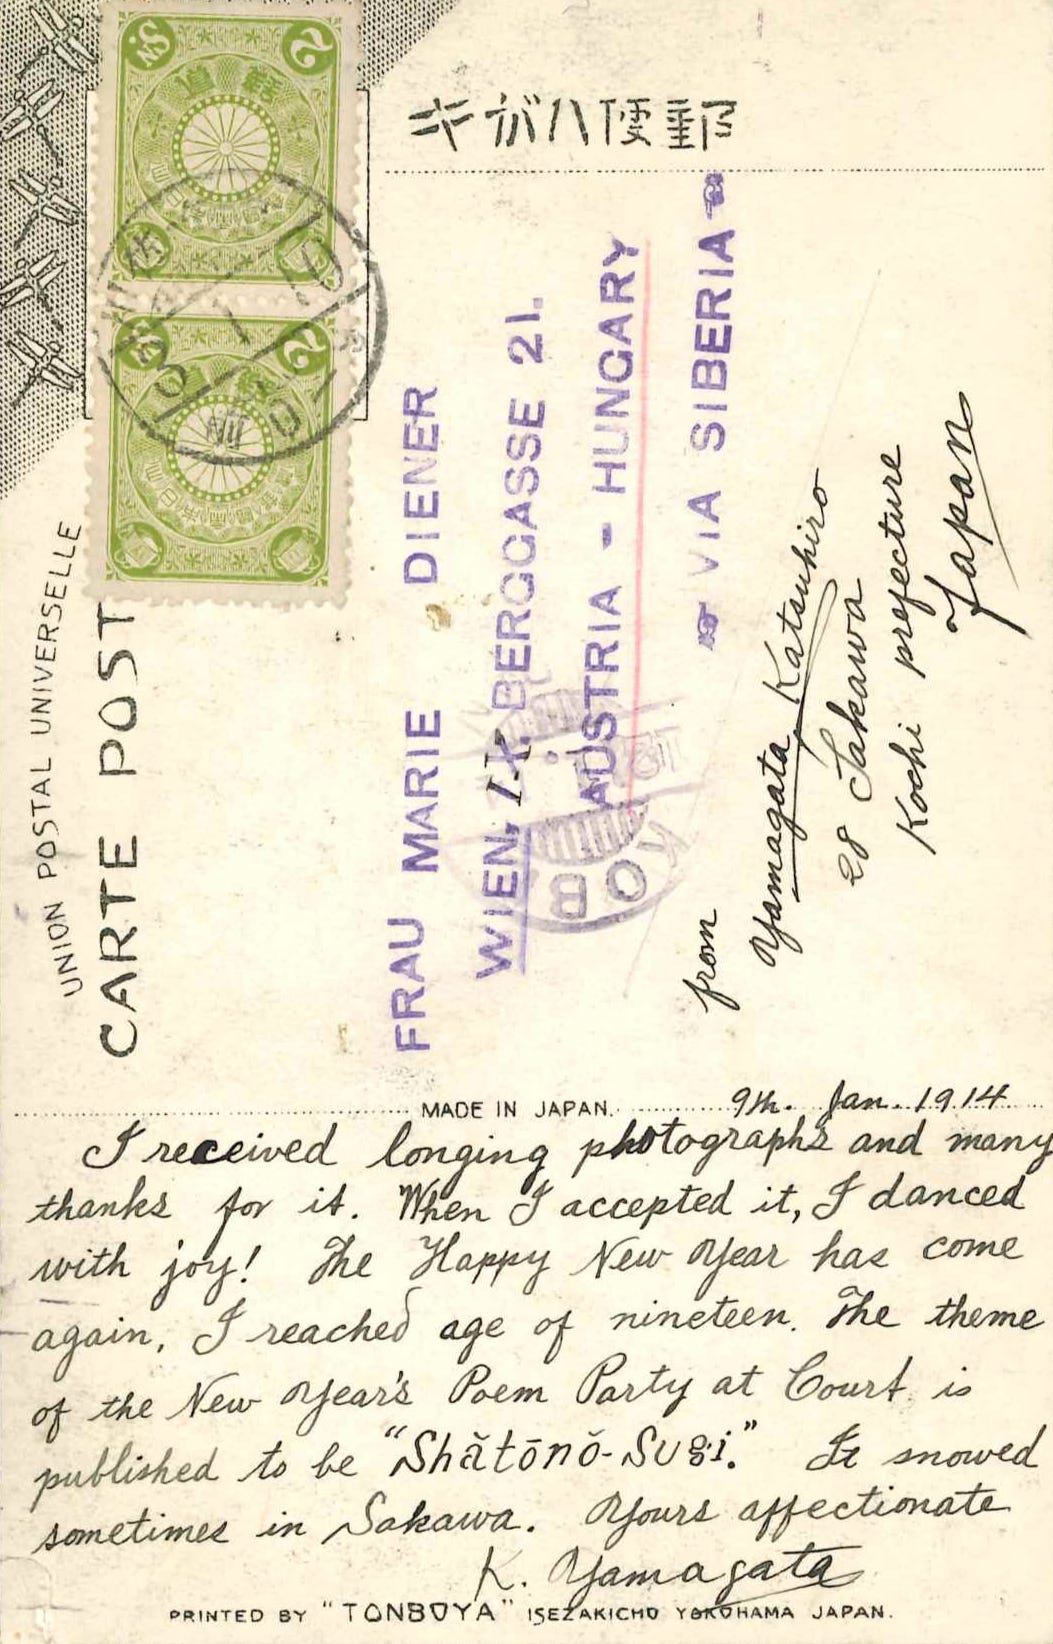 UNION POSTAL UNIVERSELLE
CARTE POST
キガハ便郵
FRAU MARIE DIENER
WIEN, IX. BERGGASSE 21.
AUSTRIA - HUNGARY
☞ VIA SIBERIA ☜
KOB
from
Yamagata Katsuhiro
28 Sakawa
Kochi prefecture
Japan
MADE IN JAPAN. 9th. Jan. 1914
I received longing photographs and many
thanks for it. When I accepted it, I danced
with joy! The Happy New Year has come
again, I reached age of nineteen. The theme
of the New Year's Poem Party at Court is
published to be "Shătōnŏ-Sugi." It snowed
sometimes in Sakawa. Yours affectionate
K. Yamagata
PRINTED BY "TONBOYA" ISEZAKICHO YOKOHAMA JAPAN.